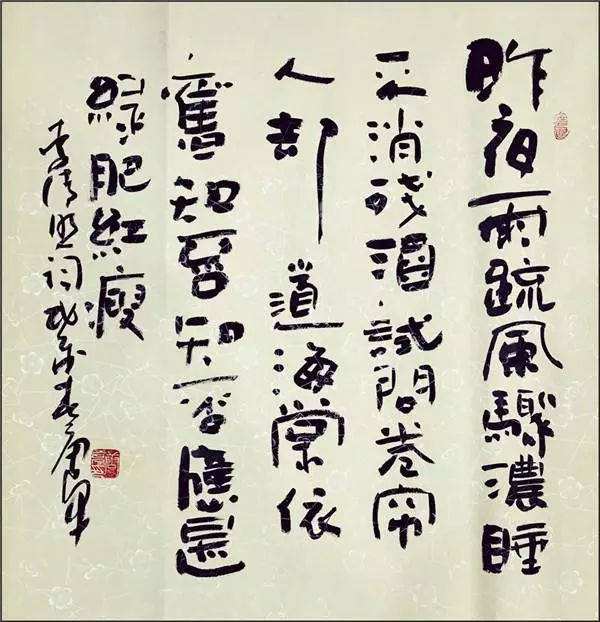 昨夜雨疏風驟濃睡
不消残酒試問卷帘
人却道海棠依
舊知否知否應是
緑肥紅瘦
李清照词